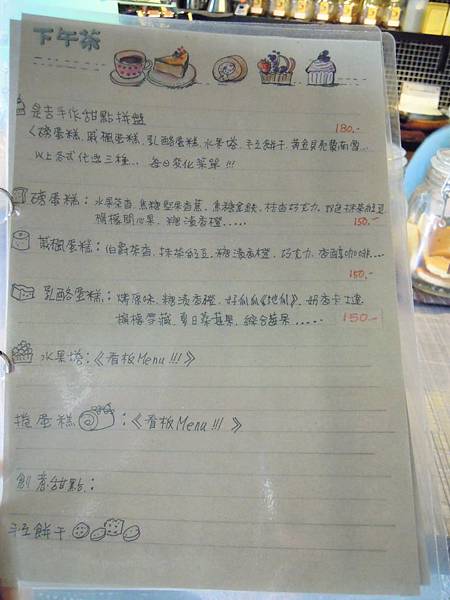 下午茶
是吉手作甜點拼盤 180.-
〈磅蛋糕、戚楓蛋糕、乳酪蛋糕、水果塔、手工餅干、黃金貝殼費南雪...
以上各式任選三種... 每日變化菜單!!!
磅蛋糕：水果茶香、焦糖堅果香蕉、焦糖金鑽、桔香巧克力、抹茶紅豆
檸檬開心果、糖漬香橙..... 150.-
戚楓蛋糕：伯爵茶香、抹茶紅豆、糖漬香橙、巧克力、香醇咖啡....
150.-
乳酪蛋糕：烤原味、糖漬香橙、好瓜瓜《地瓜》、奶香卡士達
檸檬雪藏、夏日桑莓果、綜合莓果..... 150.-
水果塔：《看板Menu!!!》
捲蛋糕：《看板Menu!!!》
創意甜點：
手工餅干